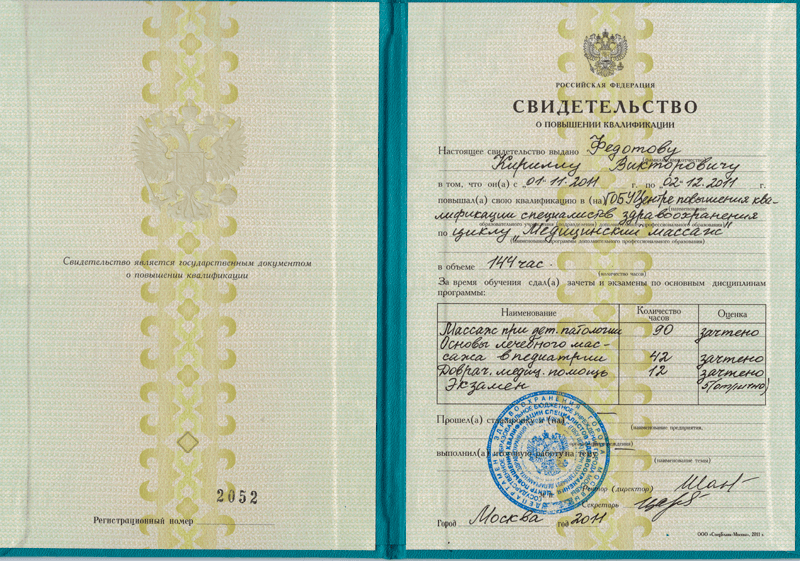 Свидетельство является государственным документом
о повышении квалификации
2052
Регистрационный номер
РОССИЙСКАЯ ФЕДЕРАЦИЯ
СВИДЕТЕЛЬСТВО
О ПОВЫШЕНИИ КВАЛИФИКАЦИИ
Настоящее свидетельство выдано Федотову
Кириллу Викторовичу
в том, что он(а) с 01-11-2011 г. по 02-12-2011 г.
повышал(а) свою квалификацию в (на) ГОБУ Центре повышения ква-
(наименование
лификации специалистов здравоохранения
образовательного учреждения (подразделения) дополнительного профессионального образования)
по циклу „Медицинский массаж"
(наименование программы дополнительного профессионального образования)
в объеме 144 час.
(количество часов)
За время обучения сдал(а) зачеты и экзамены по основным дисциплинам
программы:
Наименование Количество часов Оценка
Массаж при дет. патологии 90 зачтено
Основы лечебного мас-
сажа в педиатрии 42 зачтено
Доврач. медиц. помощь 12 зачтено
Экзамен 5(отлично)
Прошел(а) стажировку в (на)
(наименование предприятия,
выполнил(а) итоговую работу на тему
(наименование темы)
Ректор (директор)
Секретарь
Город Москва год 2011